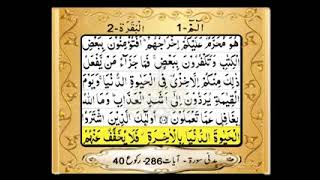 الٓمٓ-1 اَلْبَقَرَة-2
هُوَ مُحَرَّمٌ عَلَيْكُمْ اِخْرَاجُهُمْ ؕ اَفَتُؤْمِنُوْنَ بِبَعْضِ
الْكِتٰبِ وَتَكْفُرُوْنَ بِبَعْضٍ ۚ فَمَا جَزَآءُ مَنْ يَّفْعَلُ
ذٰلِكَ مِنْكُمْ اِلَّا خِزْىٌ فِى الْحَيٰوةِ الدُّنْيَا ۚ وَيَوْمَ
الْقِيٰمَةِ يُرَدُّوْنَ اِلٰٓى اَشَدِّ الْعَذَابِ ؕ وَمَا اللّٰهُ
بِغَافِلٍ عَمَّا تَعْمَلُوْنَ اُولٰٓئِكَ الَّذِيْنَ اشْتَرَوُا
الْحَيٰوةَ الدُّنْيَا بِالْاٰخِرَةِ ۫ فَلَا يُخَفَّفُ عَنْهُمُ
مدنی سورۃ - آیات 286- رکوع 40